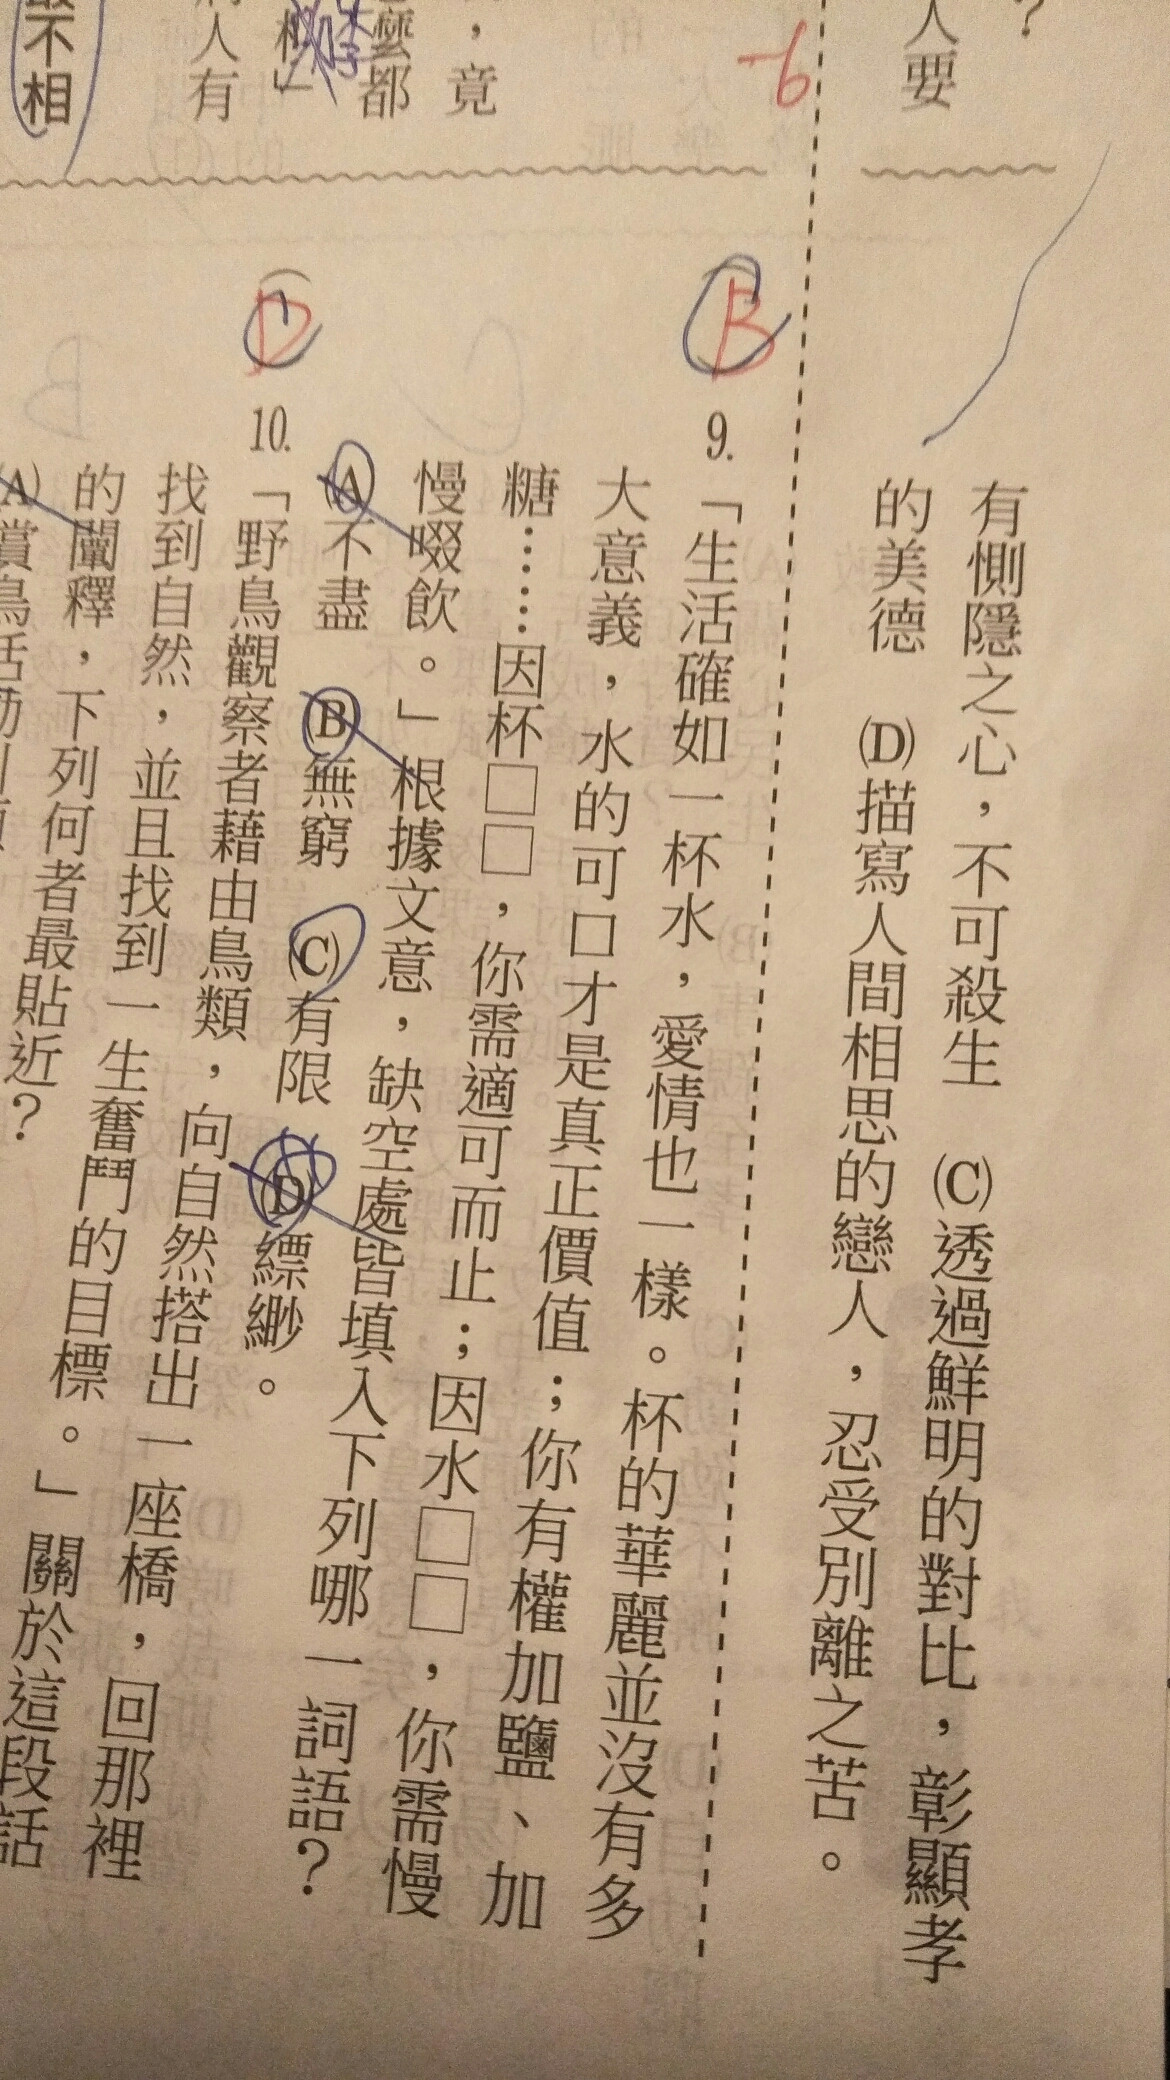 ？
人要
有惻隱之心，不可殺生　(C)透過鮮明的對比，彰顯孝
的美德　(D)描寫人間相思的戀人，忍受別離之苦。
-6
，竟
都
人有
不相
B
9.「生活確如一杯水，愛情也一樣。杯的華麗並沒有多
大意義，水的可口才是真正價值；你有權加鹽、加
糖……因杯□□，你需適可而止；因水□□，你需慢
慢啜飲。」根據文意，缺空處皆填入下列哪一詞語？
(A)不盡　(B)無窮　(C)有限　(D)縹緲。
D
10.「野鳥觀察者藉由鳥類，向自然搭出一座橋，回那裡
找到自然，並且找到一生奮鬥的目標。」關於這段話
的闡釋，下列何者最貼近？
(A)賞鳥活動